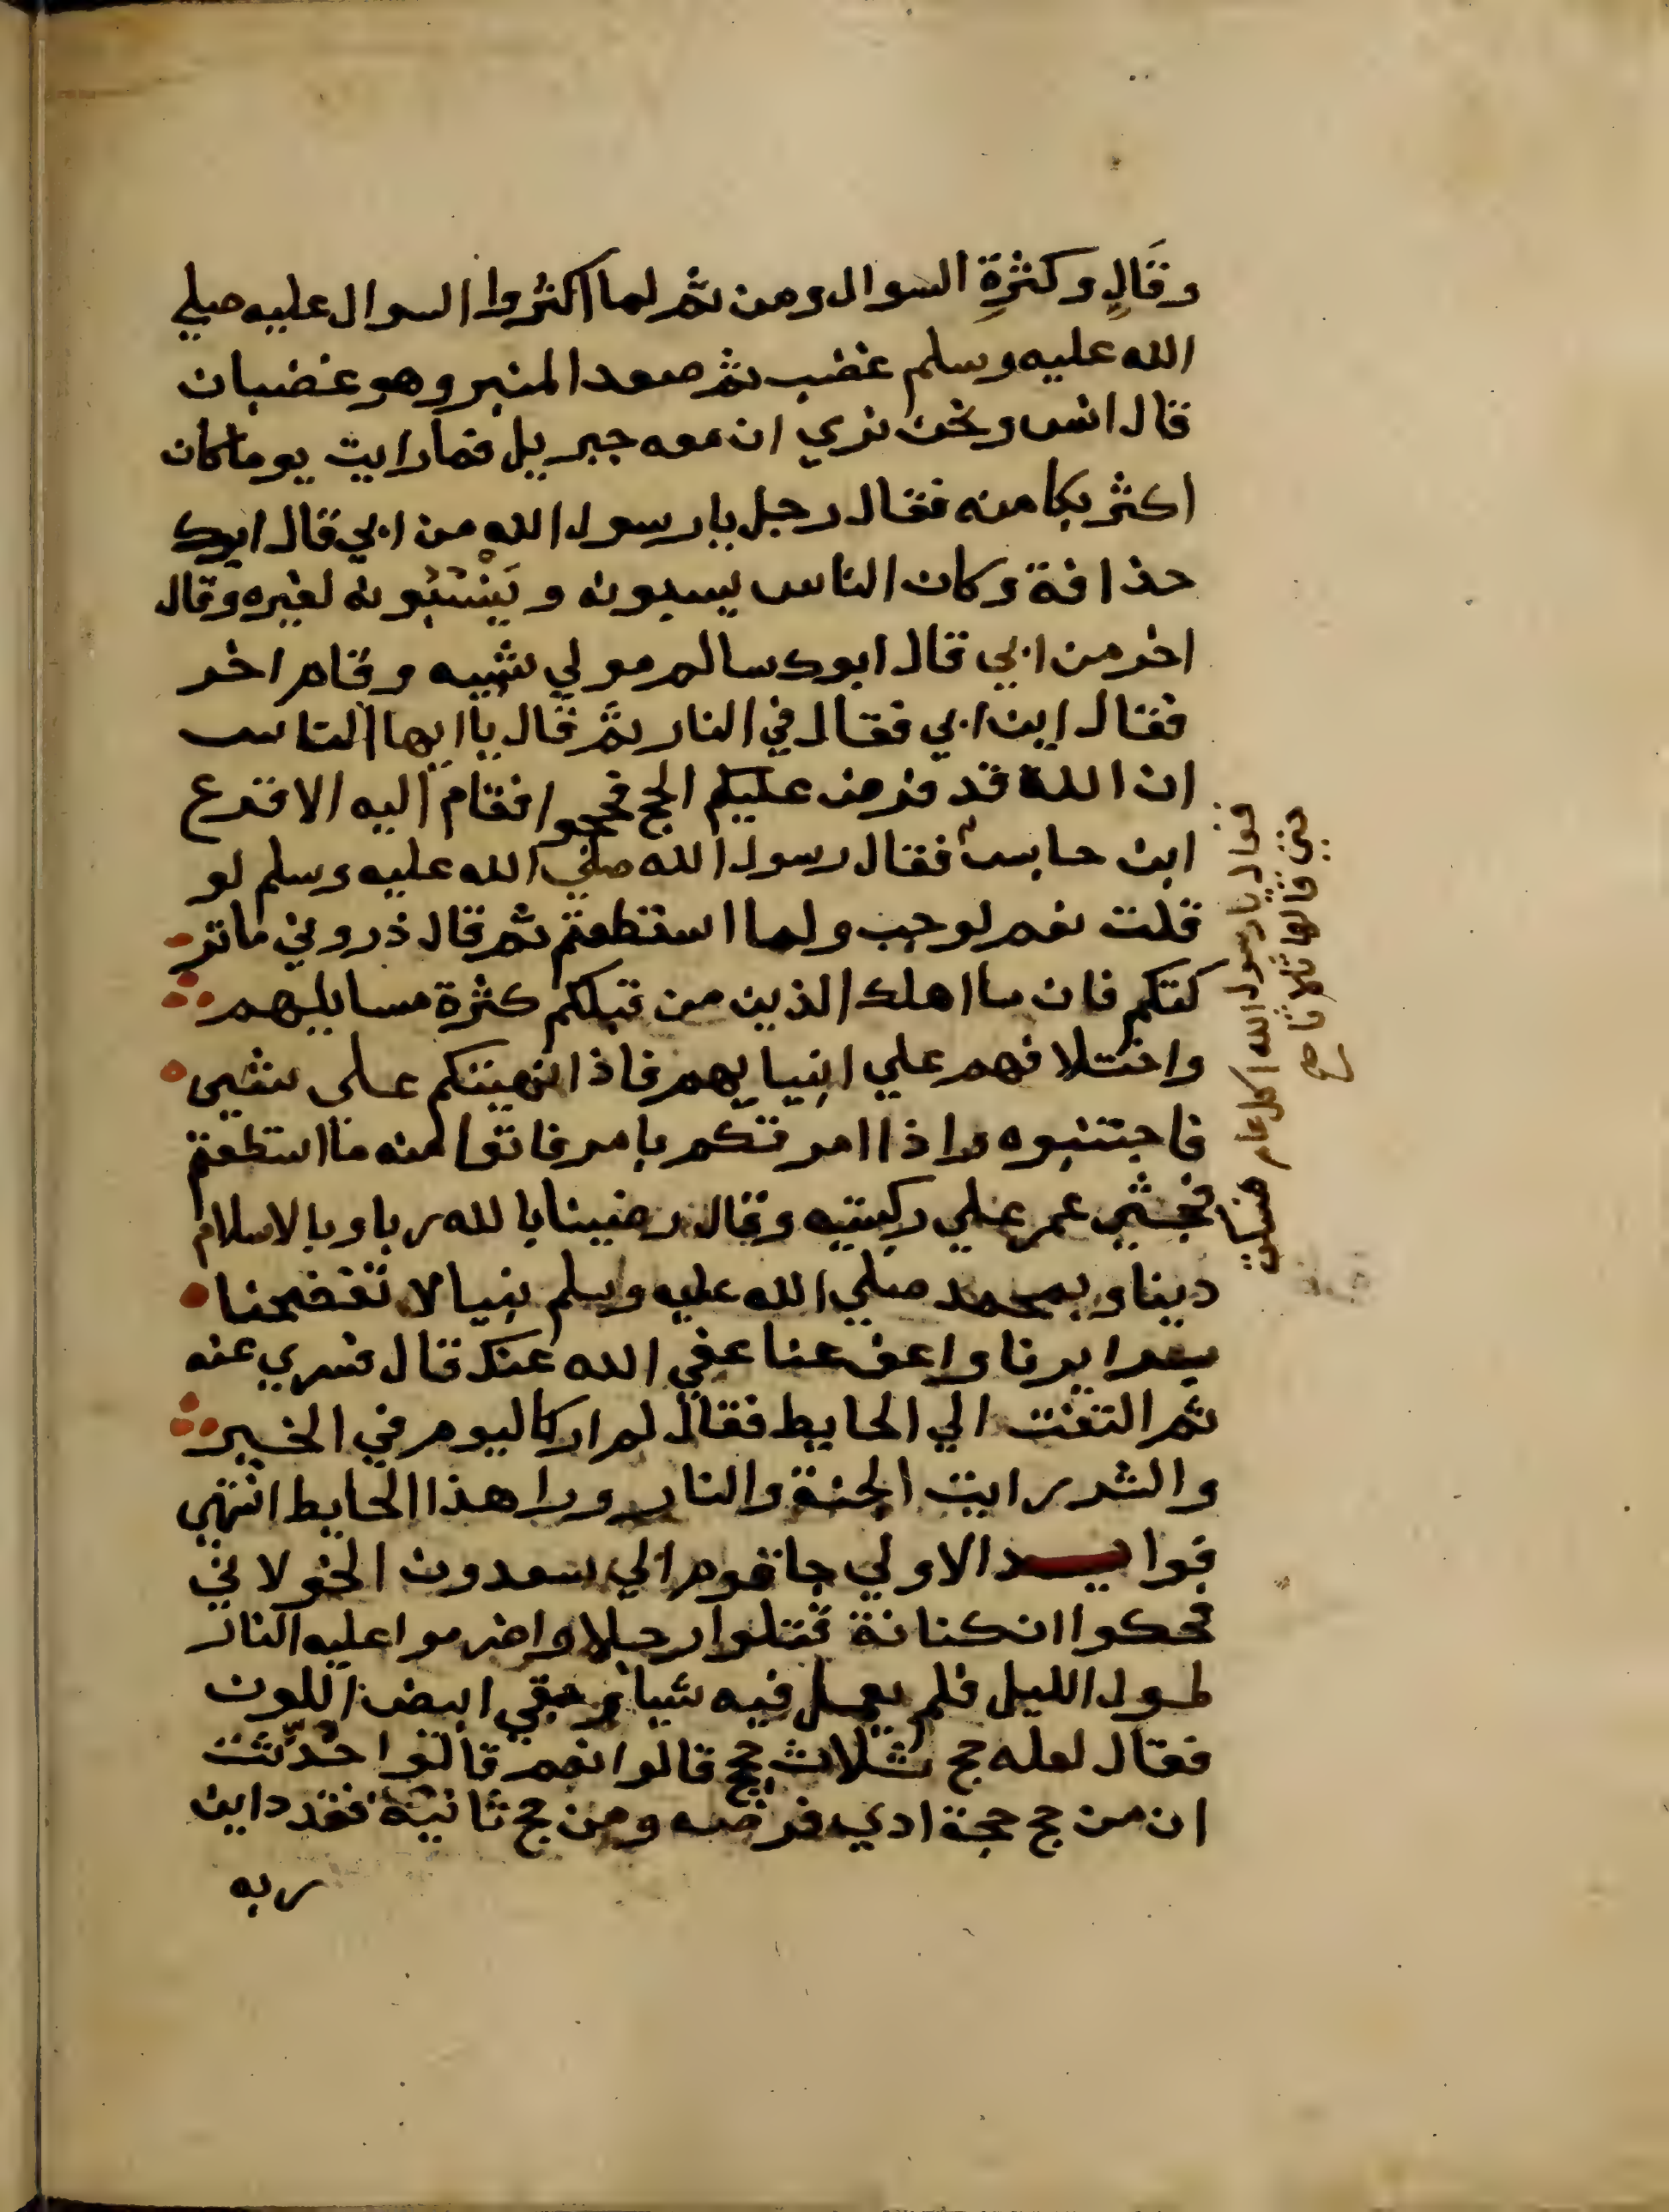 وقَالٍ وكثرةِ السوال ومن ثم لما اكثروا السوال عليه صلي
الله عليه وسلم غضب ثم صعد المنبر وهو غضبان
قال انس ونحن نري ان معه جبريل فما رايت يوما كان
اكثر بكا منه فقال رجل يا رسول الله من ابي قال ابوك
حذافة وكان الناس يسبونه و يَنْسُبُونه لغيره وقال
اخر من ابي قال ابوك سالم مولي شيبه وقام اخر
فقال اين ابي فقال في النار ثم قال يا ايها الناس
ان الله قد فرض عليكم الحج فحجوا فقام اليه الاقرع
ابن حابس فقال رسول الله صلي الله عليه وسلم لو
قلت نعم لوجب ولما استطعتم ثم قال ذروني ما تر
كتكم فان ما اهلك الذين من قبلكم كثرة مسايلهم
واختلافهم علي انبيايهم فاذا نهيتكم على شيى
فاجتنبوه واذا امرتكم بامر فاتوا منه ما استطعتم
فجثي عمر علي ركبتيه وقال رضينا بالله ربا وبالاسلام
دينا وبمحمد صلي الله عليه وسلم نبيا لا تفضحنا
بسرايرنا واعف عنا عفي الله عنك قال فسري عنه
ثم التفت الي الحايط فقال لم ار كاليوم في الخير
والشر رايت الجنة والنار ورا هذا الحايط انتهي
فوايد الاولي جا قوم الي سعدون الخولاني
فحكوا ان كنانة قتلوا رجلا واضرموا عليه النار
طول الليل فلم يعمل فيه شيا وبقي ابيض اللون
فقال لعله حج ثلاث حجج قالوا نعم قالوا حُدِّثت
ان من حج حجة ادي فرضه ومن حج ثانية فقد داين
ربه
فقال يا رسول الله اكل عام فسكت
حتي قالها ثلاثا صح